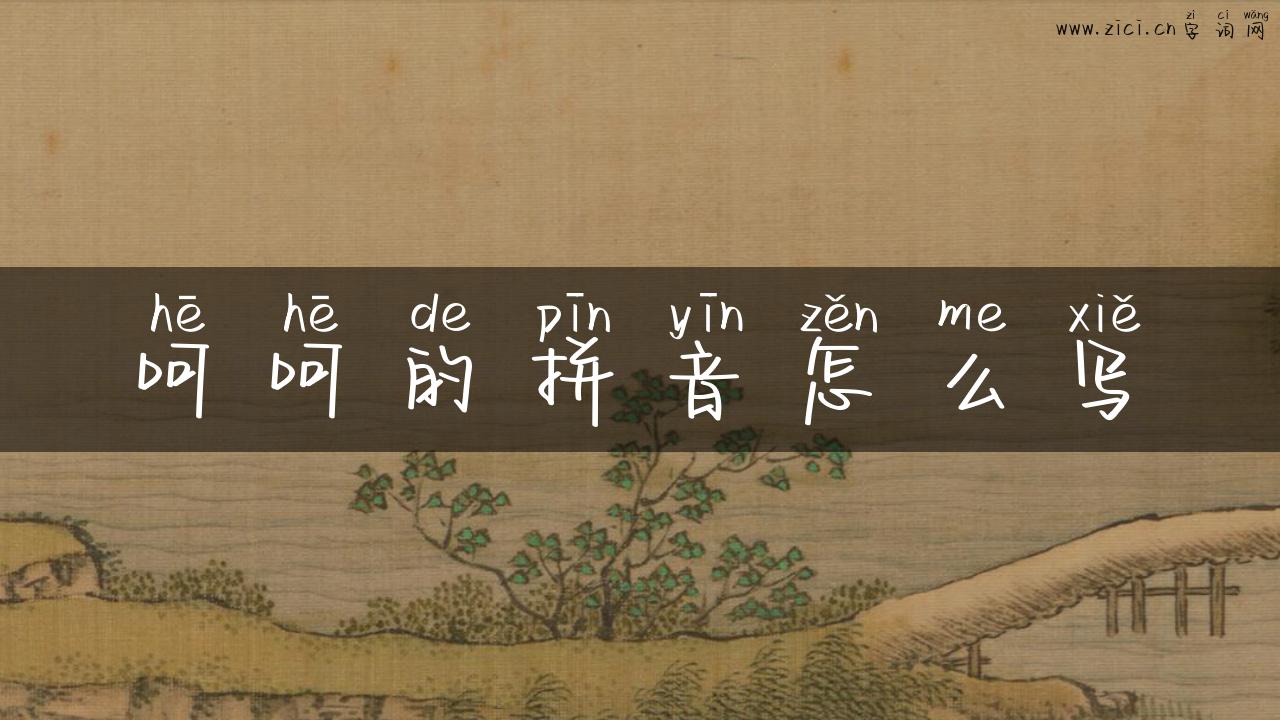 zì cí wǎng
www.zici.cn 字词网
hē hē de pīn yīn zěn me xiě
呵呵的拼音怎么写